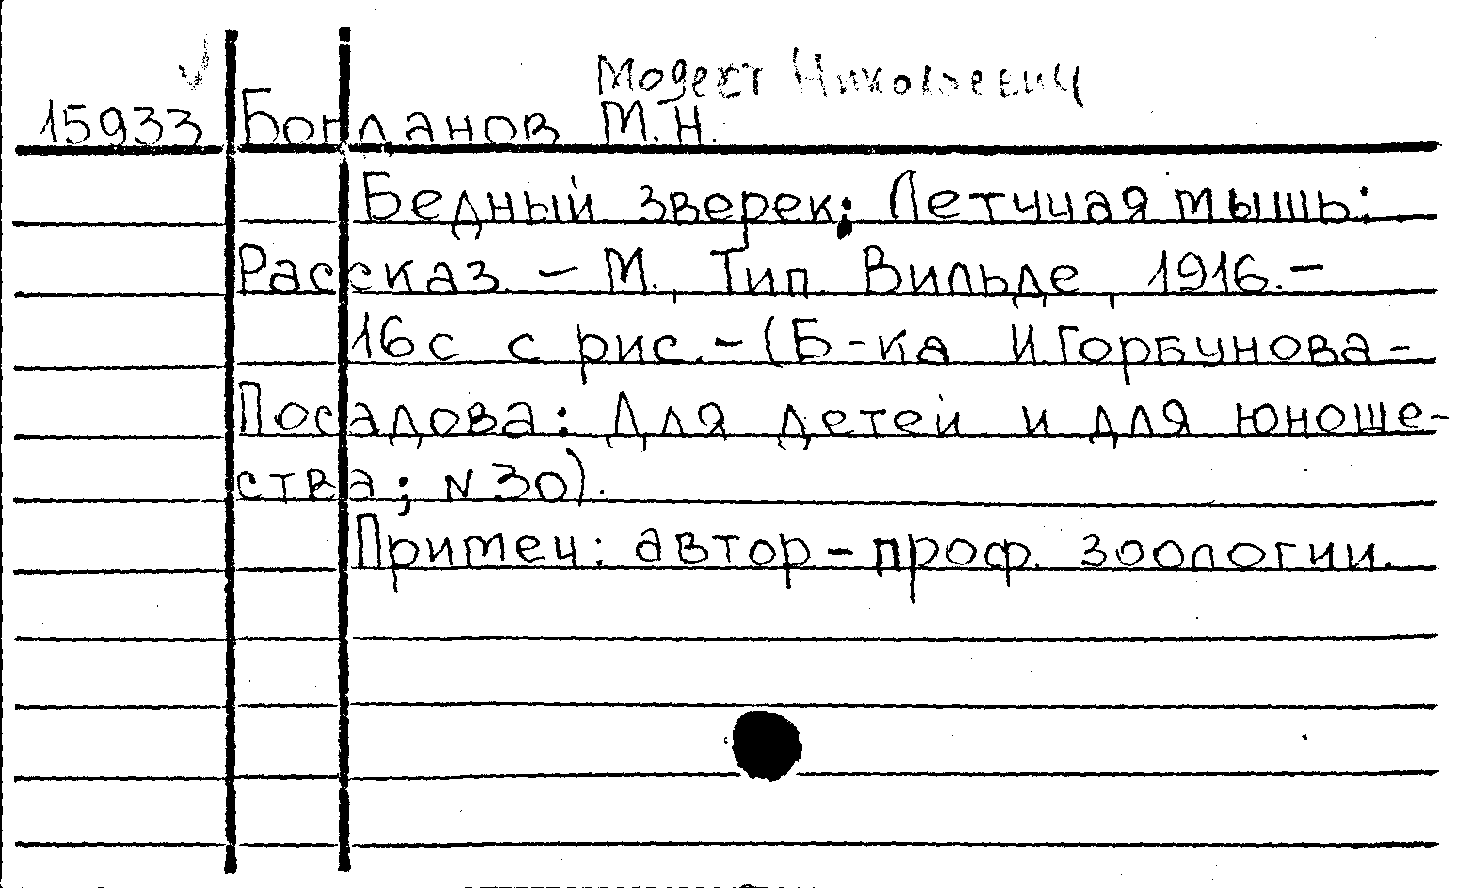 Модест Николаевич
15933 Богданов М.Н.
Бедный зверек; Летучая мышь:
Рассказ. – М., Тип. Вильде, 1916. –
16с с рис. – (Б-ка И.Горбунова-
Посадова: Для детей и для юноше-
ства; N 30).
Примеч: автор – проф. зоологии.